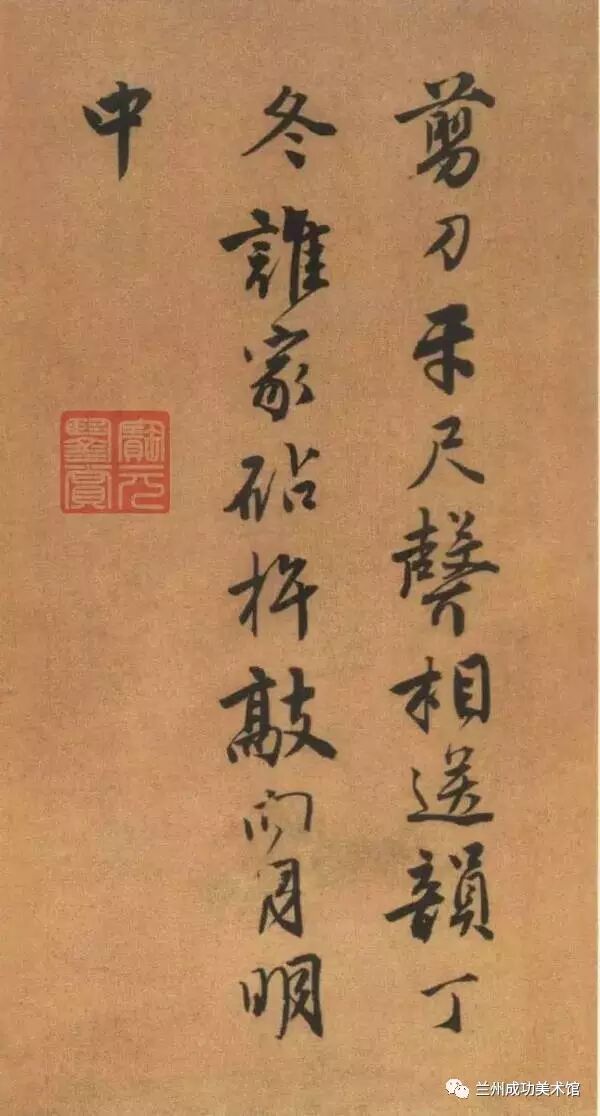 剪刀牙尺聲相送韻丁
冬誰家砧杵敲向月明
中
寶元鑒賞
兰州成功美术馆